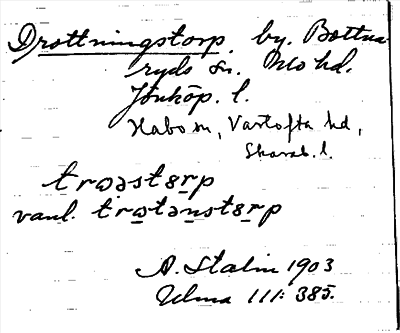 Drottningstorp, by, Bottna
ryds sn, Mo hd.
Jönköp. l.
Habo sn, Vartofta hd,
Skarab. l.
trωəstɞrp
vanl. trωtənstɞrp
A. Stalin 1903
Ulma 111: 385.